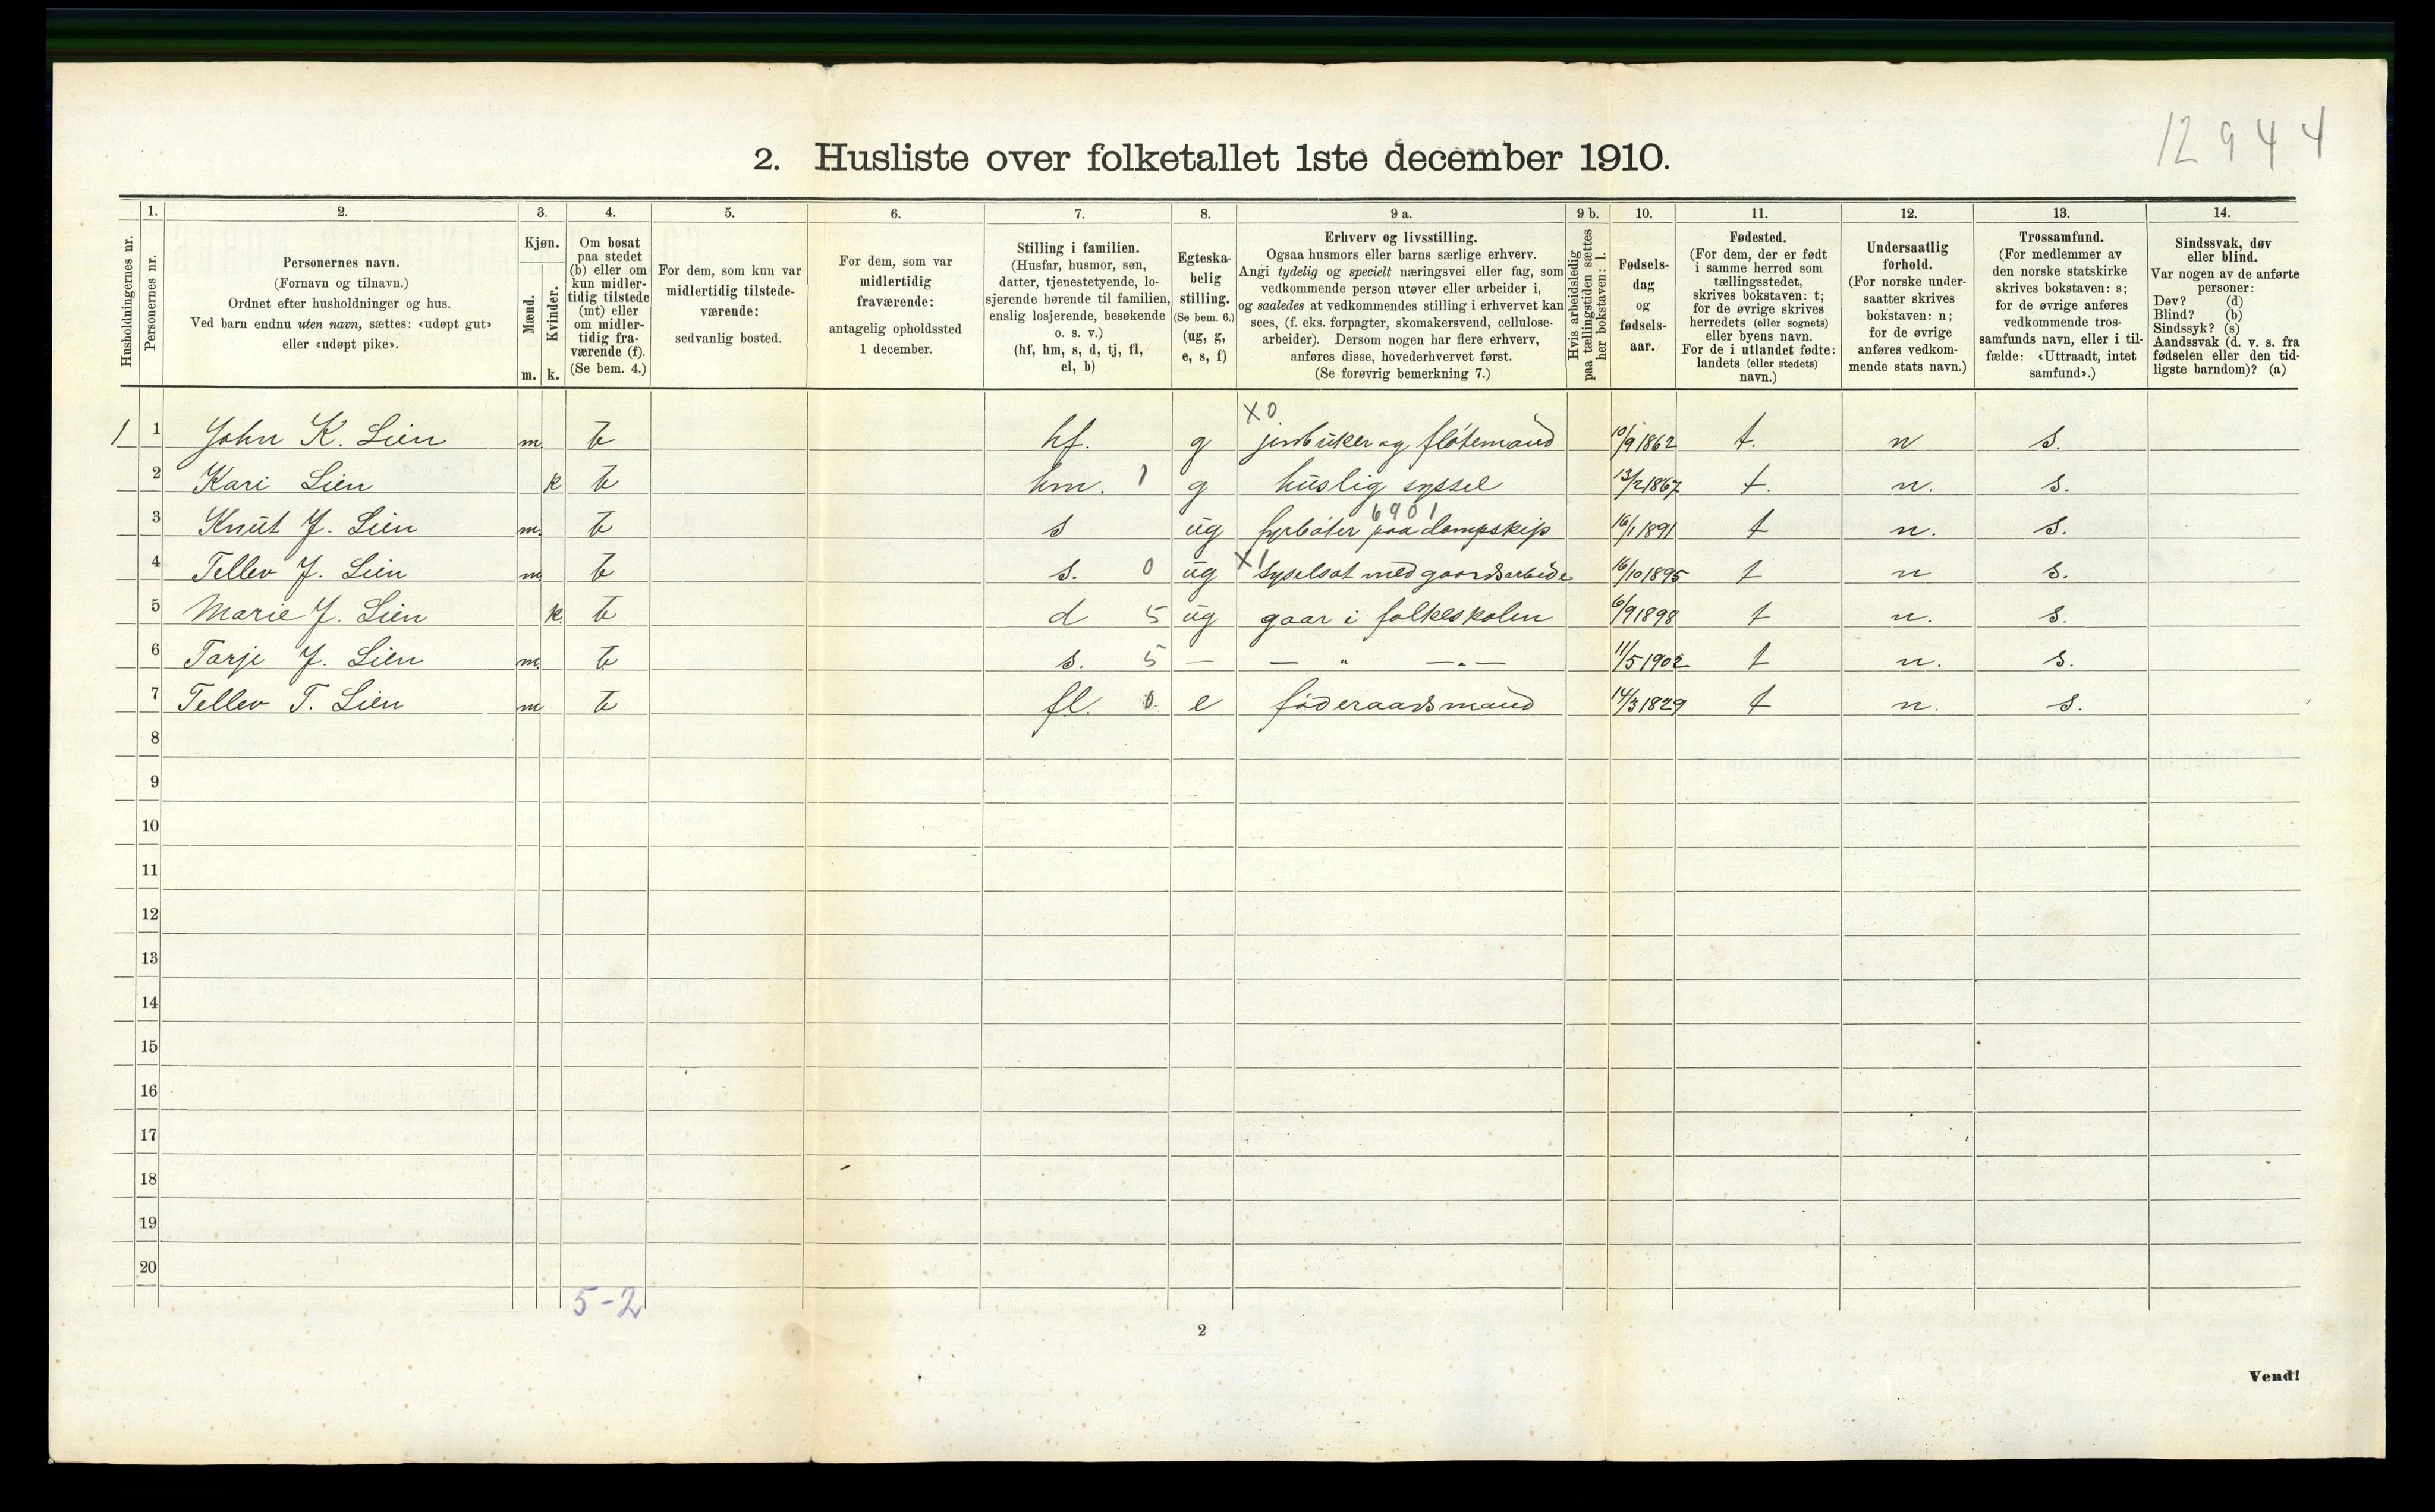 12 9 4 4
2. Husliste over folketallet 1ste december 1910.
Husholdningernes nr.
1.
Personernes nr.
2.
Personernes navn.
(Fornavn og tilnavn.)
Ordnet efter husholdninger og hus.
Ved barn endnu uten navn, sættes: «udøpt gut»
eller «udøpt pike».
3.
Kjøn.
Mænd.
Kvinder.
m. k.
4.
Om bosat
paa stedet
(b) eller om
kun midler-
tidig tilstede
(mt) eller
om midler-
tidig fra-
værende (f).
(Se bem. 4.)
5.
For dem, som kun var
midlertidig tilstede-
værende:
sedvanlig bosted.
6.
For dem, som var
midlertidig
fraværende:
antagelig opholdssted
1 december.
7.
Stilling i familien.
(Husfar, husmor, søn,
datter, tjenestetyende, lo-
sjerende hørende til familien,
enslig losjerende, besøkende
o. s. v.)
(hf, hm, s, d, tj, fl,
el, b)
8.
Egteska-
belig
stilling.
(Se bem. 6.)
(ug, g,
e, s, f)
9 a.
Erhverv og livsstilling.
Ogsaa husmors eller barns særlige erhverv.
Angi tydelig og specielt næringsvei eller fag, som
vedkommende person utøver eller arbeider i,
og saaledes at vedkommendes stilling i erhvervet kan
sees, (f. eks. forpagter, skomakersvend, cellulose-
arbeider). Dersom nogen har flere erhverv,
anføres disse, hovederhvervet først.
(Se forøvrig bemerkning 7.)
9 b.
Hvis arbeidsledig
paa tællingstiden sættes
her bokstaven: l.
10.
Fødsels-
dag
og
fødsels-
aar.
11.
Fødested.
(For dem, der er født
i samme herred som
tællingsstedet,
skrives bokstaven: t;
for de øvrige skrives
herredets (eller sognets)
eller byens navn.
For de i utlandet fødte:
landets (eller stedets)
navn.)
12.
Undersaatlig
forhold.
(For norske under-
saatter skrives
bokstaven: n;
for de øvrige
anføres vedkom-
mende stats navn.)
13.
Trossamfund.
(For medlemmer av
den norske statskirke
skrives bokstaven: s;
for de øvrige anføres
vedkommende tros-
samfunds navn, eller i til-
fælde: «Uttraadt, intet
samfund».)
14.
Sindssvak, døv
eller blind.
Var nogen av de anførte
personer:
Døv? (d)
Blind? (b)
Sindssyk? (s)
Aandssvak (d. v. s. fra
fødselen eller den tid-
ligste barndom)? (a)
X 0
1 1 John K. Lien m. b hf. g jordbruker og fløtemand 10/9 1862 t. n s.
2 Kari Lien k b hm. 1 g huslig syssel 13/2 1867 t. n. s.
6901
3 Knut J. Lien m. b s ug fyrbøter paa dampskip 16/1 1891 t n. s.
X 1
4 Tellev J. Lien m b s. 0 ug syselsat med gaardsarbeide 16/10 1895 t n s.
5 Marie J. Lien k. b d 5 ug gaar i folkeskolen 6/9 1898 t n. s.
6 Tarje J. Lien m. b s. 5 — — " —"— 11/5 1902 t n. s.
7 Tellev T. Lien m b fl. 0. e føderaadsmand 14/3 1829 t n. s.
8
9
10
11
12
13
14
15
16
17
18
19
20
5-2
2
Vend!